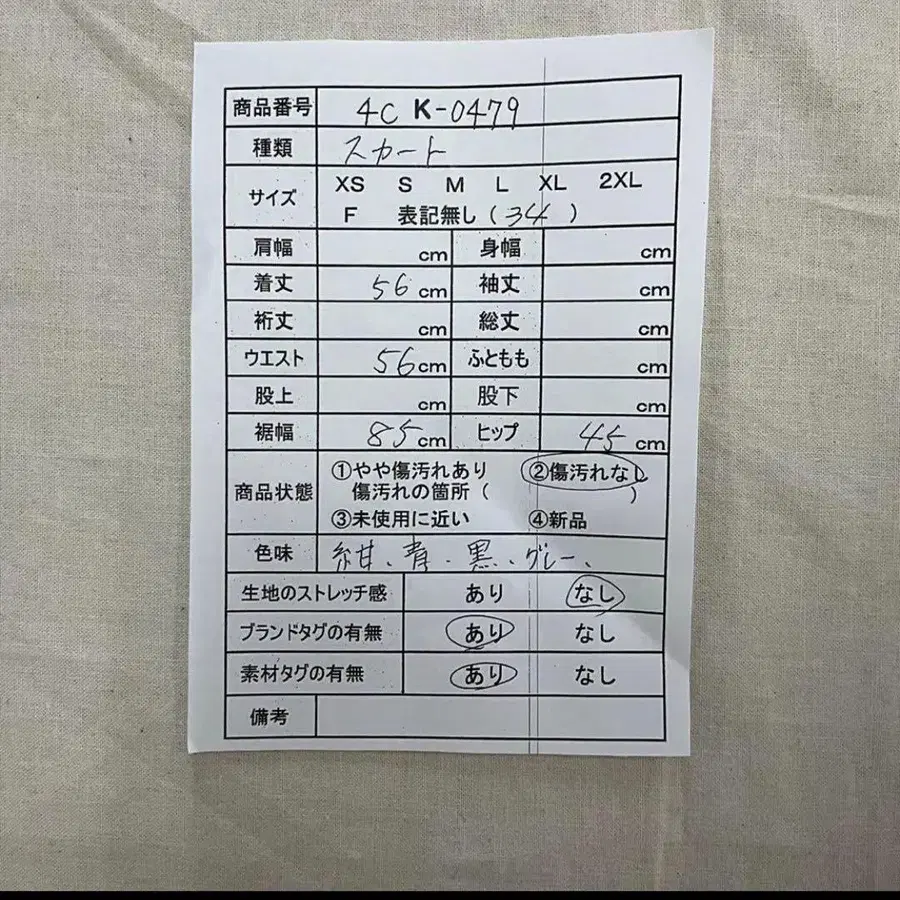 商品番号 4C K-0479
種類 スカート
サイズ XS S M L XL 2XL
F 表記無し(34)
肩幅 cm 身幅 cm
着丈 56cm 袖丈 cm
裄丈 cm 総丈 cm
ウエスト 56cm ふともも cm
股上 cm 股下 cm
裾幅 85cm ヒップ 45cm
商品状態 ①やや傷汚れあり ②傷汚れなし
傷汚れの箇所( )
③未使用に近い ④新品
色味 紺、青、黒、グレー、
生地のストレッチ感 あり なし
ブランドタグの有無 あり なし
素材タグの有無 あり なし
備考